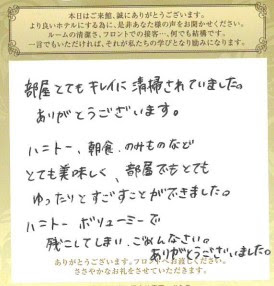 本日はご来館、誠にありがとうございます。
より良いホテルにする為に、是非あなた様の声をお聞かせください。
ルームの清潔さ、フロントでの接客…、何でも結構です。
一言でもいただければ、それが私たちの学びとなり励みになります。
部屋とてもキレイに清掃されていました。
ありがとうございます。
ハニトー、朝食、のみものなど
とても美味しく、部屋でもとても
ゆったりとすごすことができました。
ハニトー ボリューミーで
残こしてしまい、ごめんなさい。
ありがとうございました。
ありがとうございます。フロントへお渡しください。
ささやかなお礼をさせていただきます。